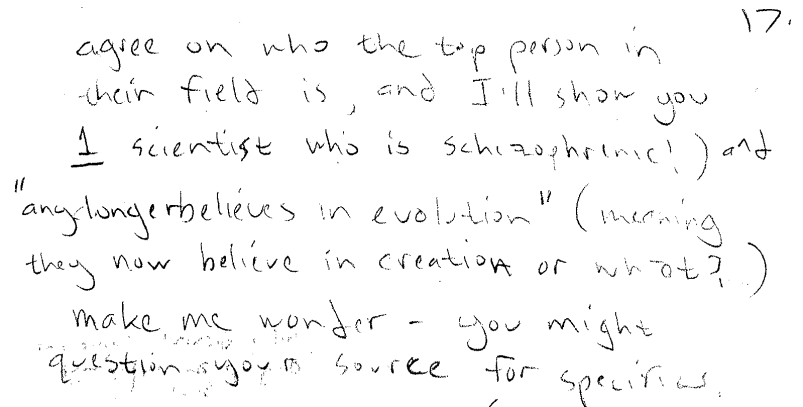 17.
agree on who the top person in
their field is, and I'll show you
1 scientist who is schizophrenic!) and
"any longer believes in evolution" (meaning
they now believe in creation or what?)
make me wonder - you might
question your source for specifics.